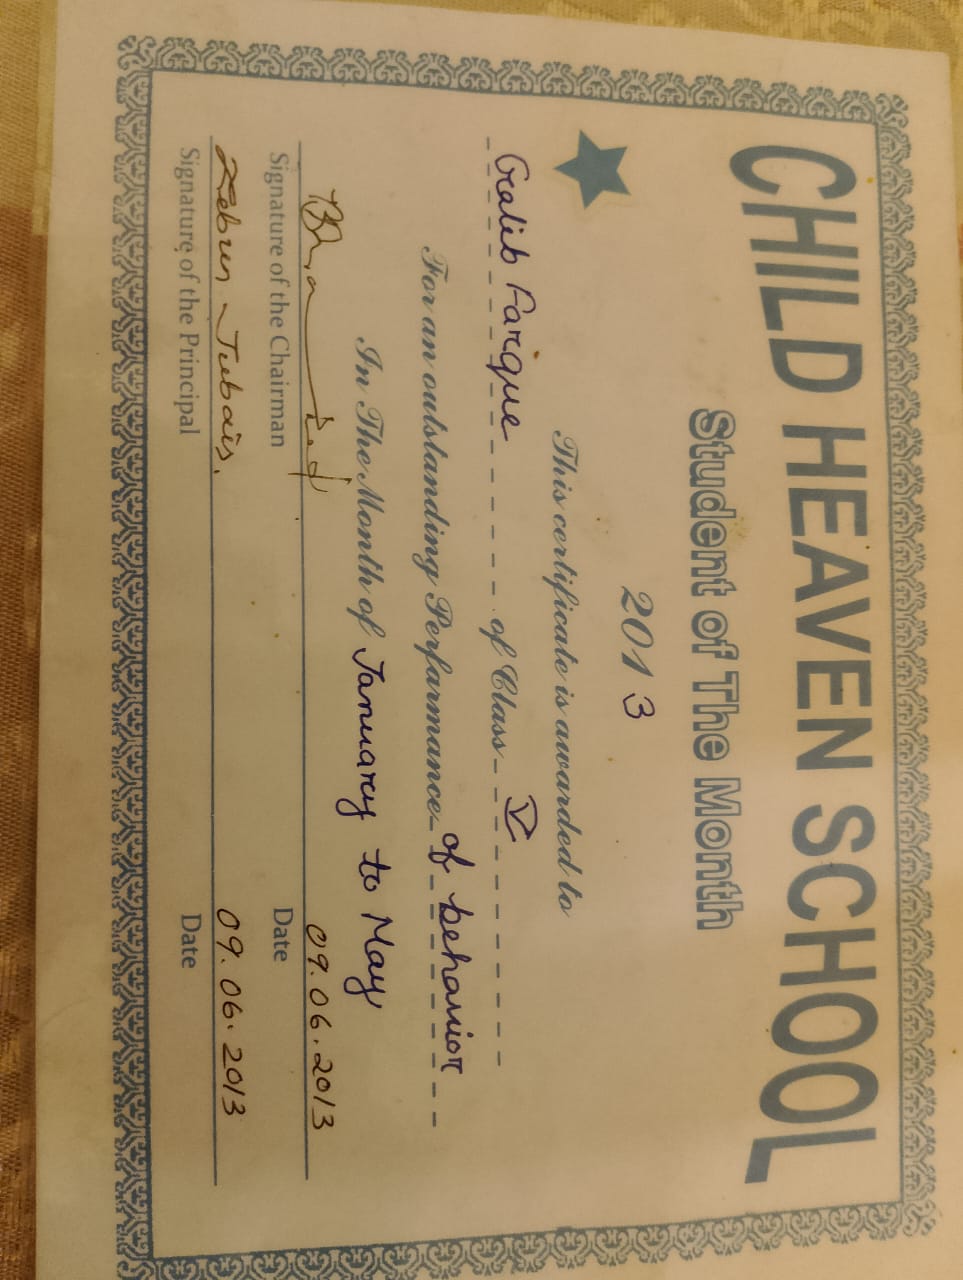 CHILD HEAVEN SCHOOL
Student of The Month
2013
This certificate is awarded to
Galib Farque of Class V
For an outstanding Perfarmance of behavior
In The Month of January to May
09.06.2013
Signature of the Chairman Date
Zebun Jubais. 09.06.2013
Signature of the Principal Date